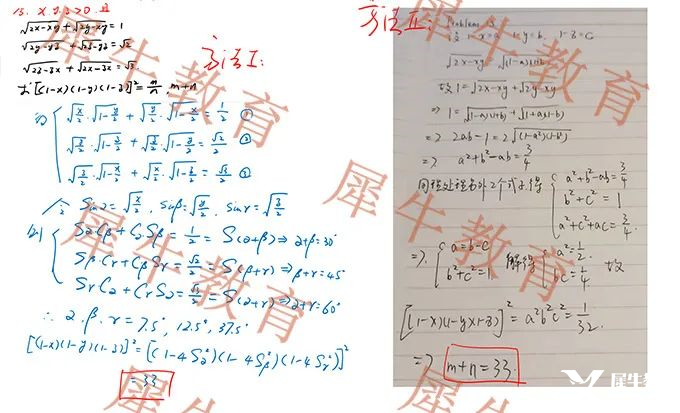 15. x.y.z>0. 且
√2x-xy + √2y-xy = 1
√2y-yz + √2z-yz = √2
√2z-zx + √2x-zx = √3
求[(1-x)(1-y)(1-z)]² = m/n, m+n
方法I:
√x/2 · √1-y/2 + √y/2 · √1-x/2 = 1/2 ①
√y/2 · √1-z/2 + √z/2 · √1-y/2 = √2/2 ②
√z/2 · √1-x/2 + √x/2 · √1-z/2 = √3/2 ③
令 Sinα = √x/2, Sinβ = √y/2, Sinγ = √z/2
则 SαCβ + CαSβ = 1/2 = S(α+β) ⇒ α+β = 30°
SβCγ + CβSγ = √2/2 = S(β+γ) ⇒ β+γ = 45°
SγCα + CγSα = √3/2 = S(α+γ) ⇒ α+γ = 60°
∴ α.β.γ = 7.5°, 12.5°, 37.5°
[(1-x)(1-y)(1-z)]² = [(1-4Sα²)(1-4Sβ²)(1-4Sγ²)]²
= 33
方法II:
Problems 15
1-x=a 1-y=b, 1-z=c
√2x-xy = √(1-a)(1+b)
故 1 = √2x-xy + √2y-xy
⇒ 1 = √(1-a)(1+b) + √(1+a)(1-b)
⇒ 2ab-1 = 2√(1-a²)(1-b²)
⇒ a²+b²-ab = 3/4
同理处理另外2个式子.得
a²+b²-ab = 3/4
b²+c² = 1
a²+c²+ac = 3/4.
⇒ a = b-c
b²+c²=1
解得
a² = 1/2.
bc = 1/4.
故
[(1-x)(1-y)(1-z)]² = a²b²c² = 1/32.
⇒ m+n = 33.
犀牛教育
犀牛教育
犀牛教育
犀牛教育